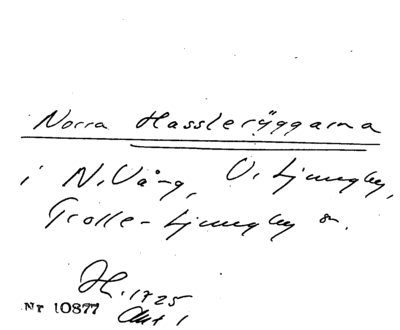 Norra Hassleryggarna
i N. Vång, V. Ljungby,
Trolle-Ljungby sn.
H. 1725
Akt 1
Nr 10877